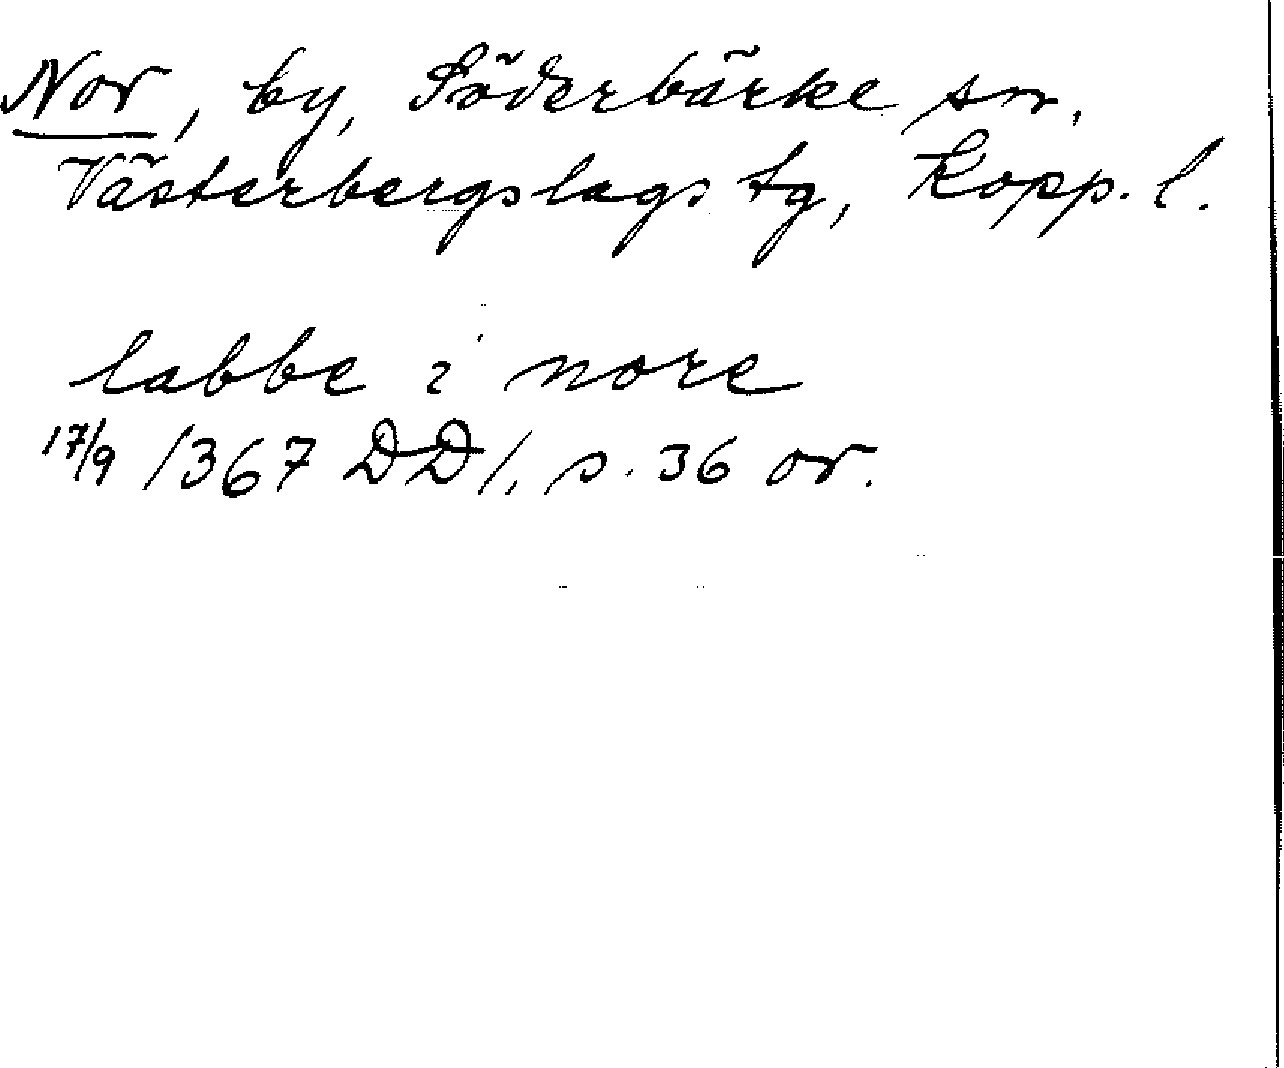 Nor, by, Söderbärke sn,
Västerbergslags tg, Kopp. l.
labbe i nore
17/9 1367 DD 1, s. 36 or.